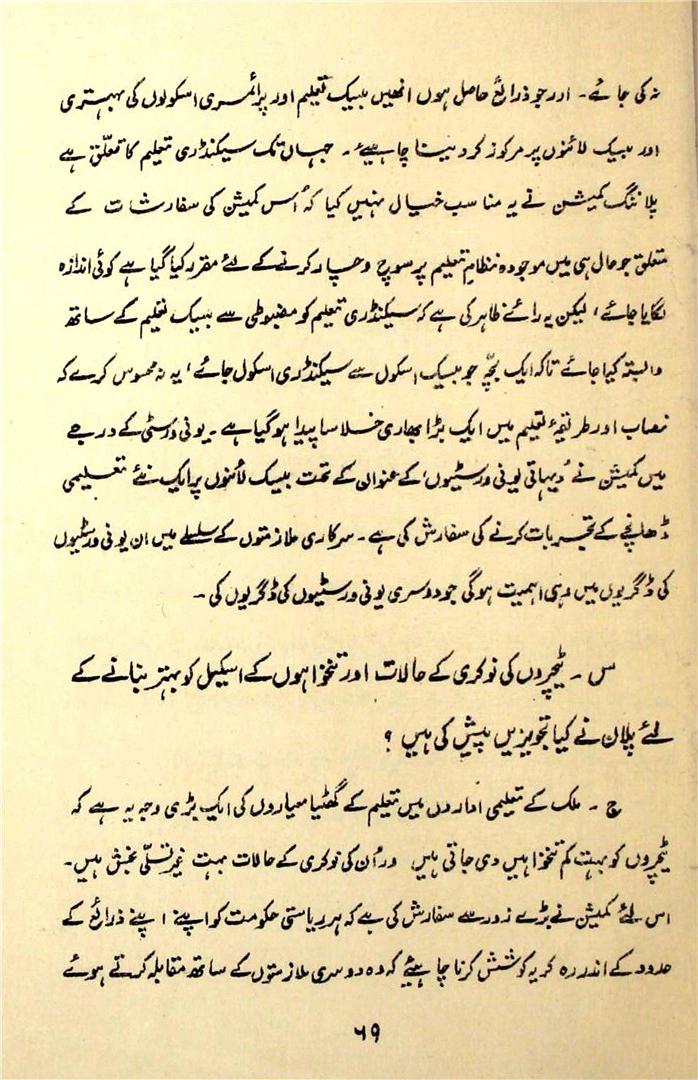 نہ کی جائے۔ اور جو ذرائع حاصل ہوں انھیں بیسک تعلیم اور پرائمری اسکولوں کی بہتری
اور بیسک لائنوں پر مرکوز کر دینا چاہیئے۔ جہاں تک سیکنڈری تعلیم کا تعلّق ہے
پلاننگ کمیشن نے یہ مناسب خیال نہیں کیا کہ اُس کمیشن کی سفارشات کے
متعلق جو حال ہی میں موجودہ نظامِ تعلیم پر سوچ وچار کرنے کے لئے مقرر کیا گیا ہے کوئی اندازہ
لگایا جائے، لیکن یہ رائے ظاہر کی ہے کہ سیکنڈری تعلیم کو مضبوطی سے بیسک تعلیم کے ساتھ
وابستہ کیا جائے تاکہ ایک بچّہ جو بیسک اسکول سے سیکنڈری اسکول جائے، یہ نہ محسوس کرے کہ
نصاب اور طریقۂ تعلیم میں ایک بڑا بھاری خلا سا پیدا ہو گیا ہے۔ یونی ورسٹی کے درجے
میں کمیشن نے ’دیہاتی یونی ورسٹیوں‘ کے عنوان کے تحت بیسک لائنوں پر ایک نئے تعلیمی
ڈھانچے کے تجربات کرنے کی سفارش کی ہے۔ سرکاری ملازمتوں کے سلسلے میں ان یونی ورسٹیوں
کی ڈگریوں میں وہی اہمیت ہوگی جو دوسری یونی ورسٹیوں کی ڈگریوں کی۔
س۔ ٹیچروں کی نوکری کے حالات اور تنخواہوں کے اسکیل کو بہتر بنانے کے
لئے پلان نے کیا تجویزیں پیش کی ہیں ؟
ج۔ ملک کے تعلیمی اداروں میں تعلیم کے گھٹیا معیاروں کی ایک بڑی وجہ یہ ہے کہ
ٹیچروں کو بہت کم تنخواہیں دی جاتی ہیں ور اُن کی نوکری کے حالات بہت غیر تسلّی بخش ہیں۔
اس لئے کمیشن نے بڑے زور سے سفارش کی ہے کہ ہر ریاستی حکومت کو اپنے اپنے ذرائع کے
حدود کے اندر رہ کر یہ کوشش کرنا چاہیئے کہ وہ دوسری ملازمتوں کے ساتھ مقابلہ کرتے ہوئے
۶۹